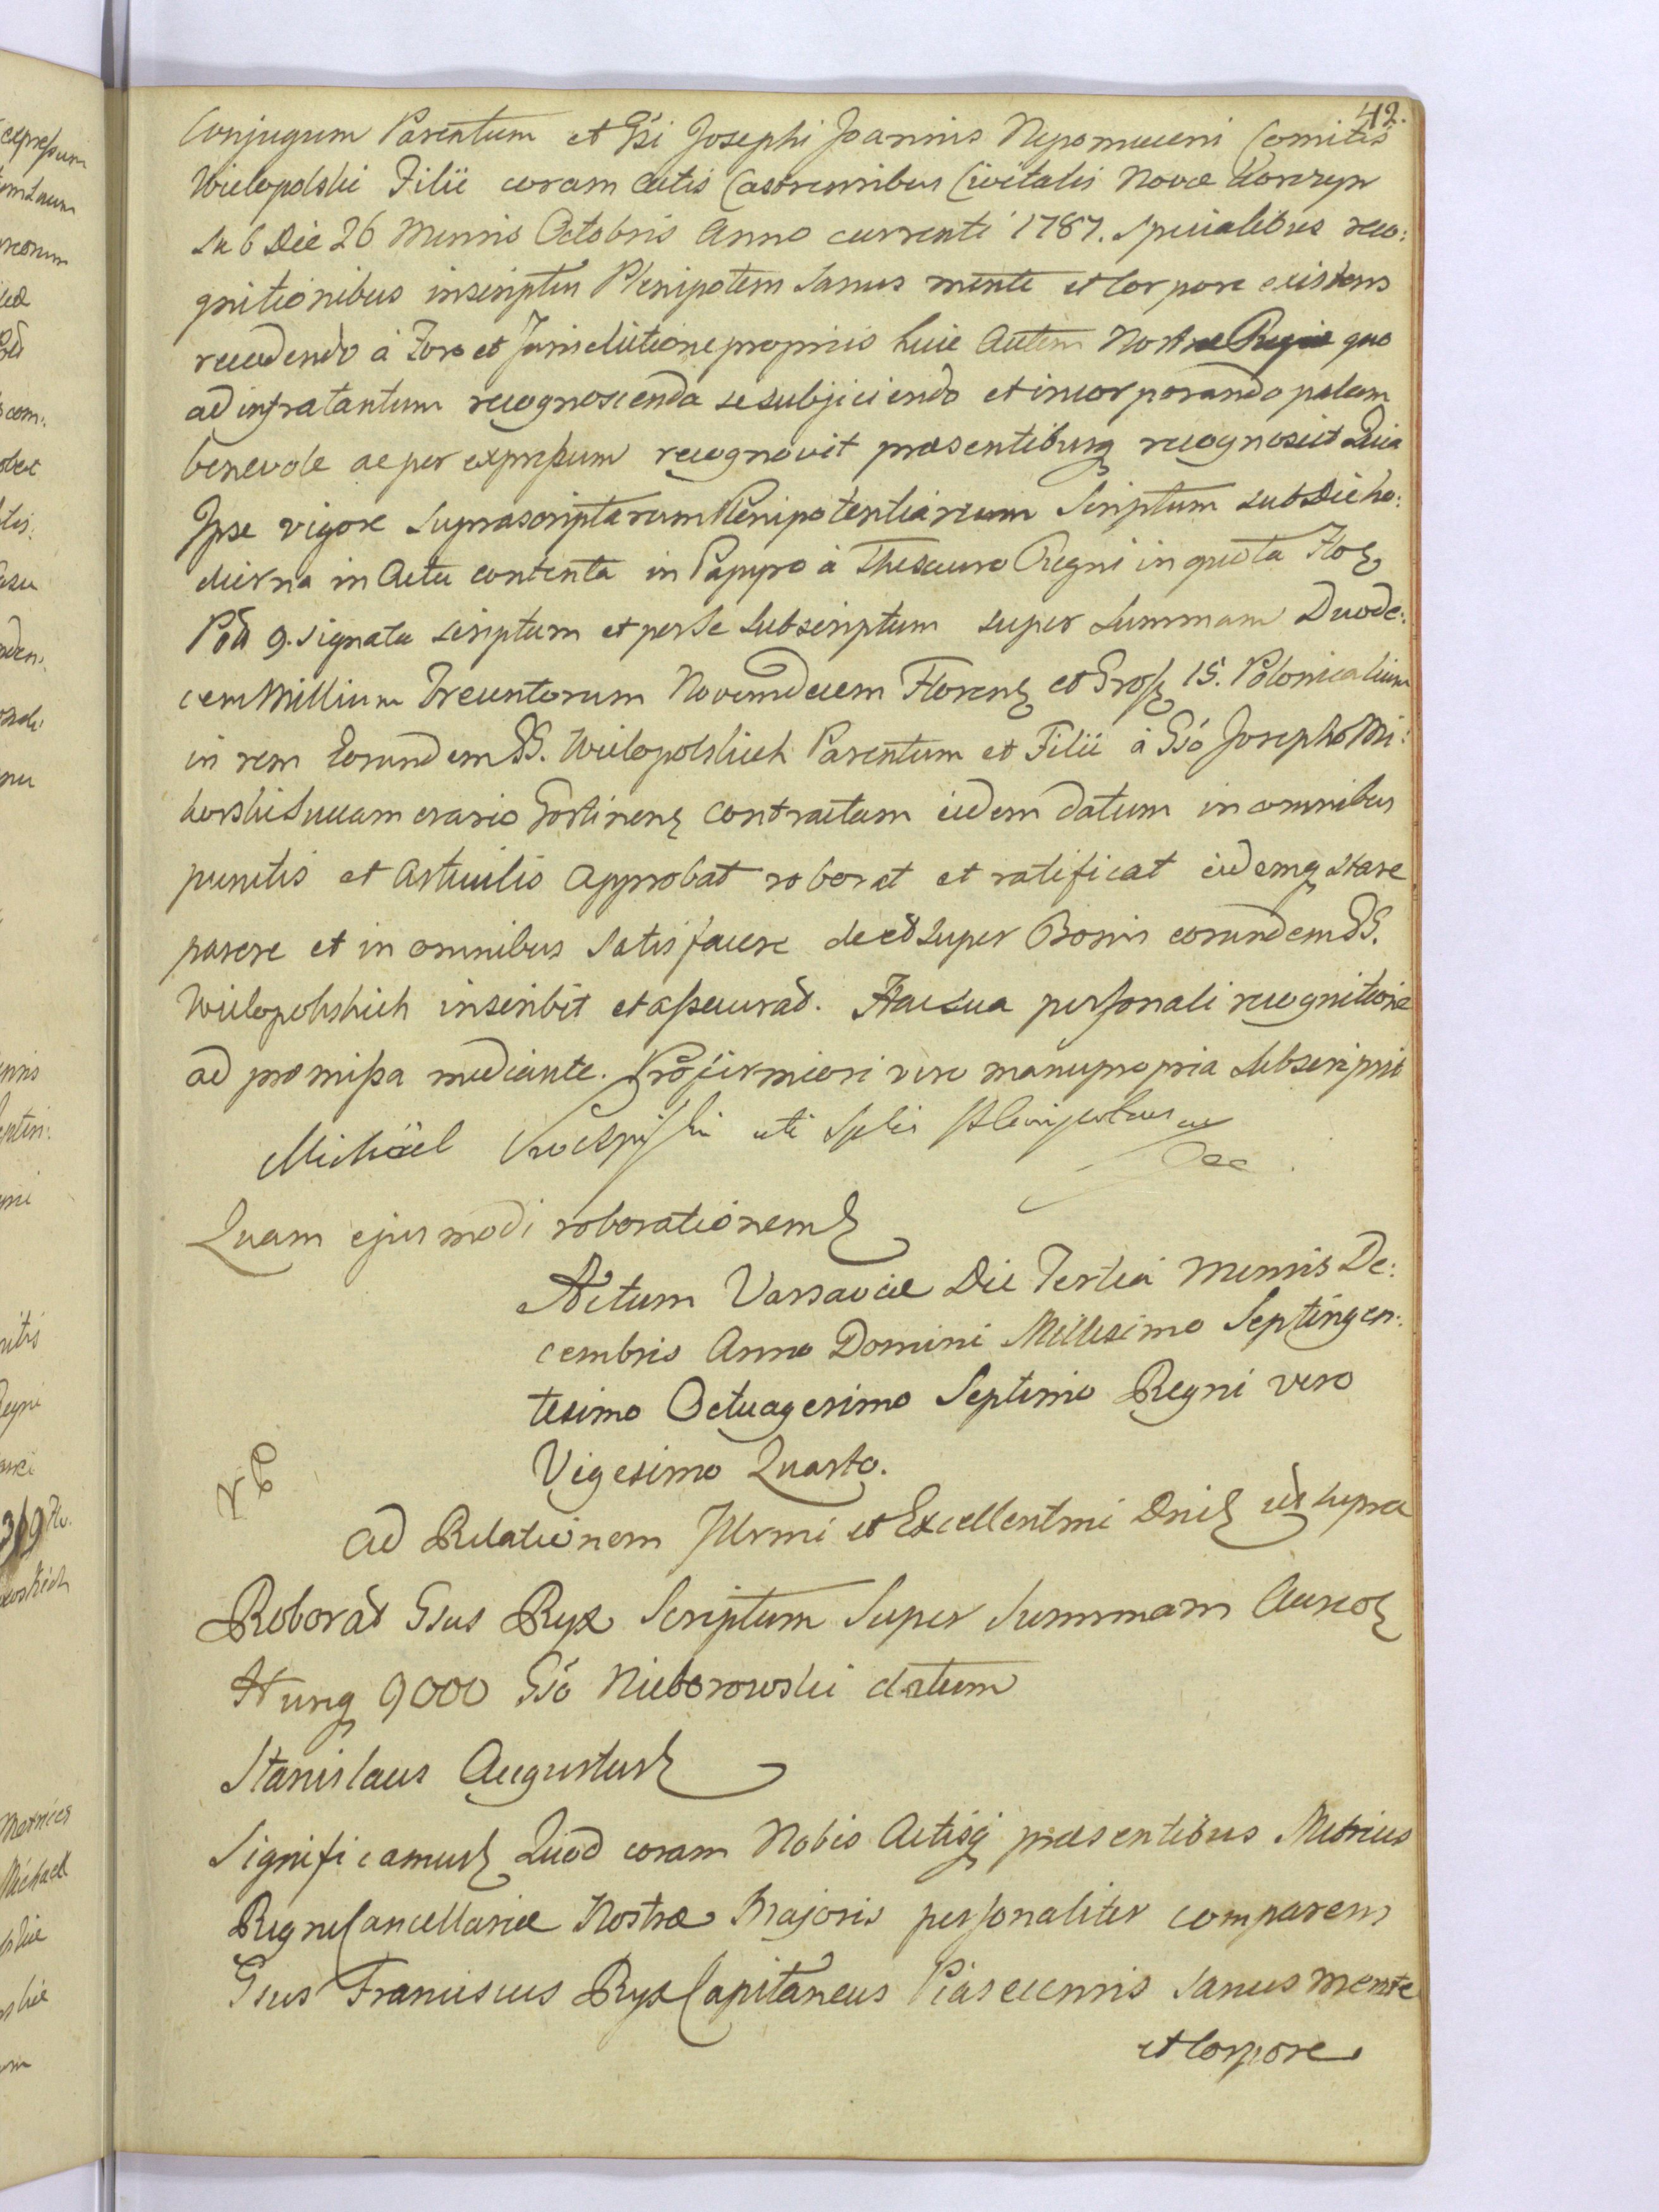 42.
Conjugum Parentum et Gsi Josephi Joannis Nepomuceni Comitis
Wielopolski Filii coram Actis Castrensibus Civitatis Novæ Korczyn
sub Die 26 Mensis Octobris Anno currenti 1787. specialibus reco:
gnitionibus inscriptus Plenipotens sanus mente et Corpore existens
recedendo à Foro et Jurisdictione propriis huic Autem Nostræ Regiæ quo
ad infra tantum recognoscenda se subjiciendo et incorporando palam
benevole ac per expressum recognovit præsentibusq recognoscit Quia
Ipse vigore suprascriptarum Plenipotentiarum Scriptum sub Die ho:
dierna in Actu contenta in Papyro à Thesauro Regni in quota Flor
Pol 9. signata scriptum et per se subscriptum super Summam Duode:
cem Millium Trecentorum Novemdecem Floren et Gross 15. Polonicalium
in rem Eorundem GG. Wielopolskich Parentum et Filii à Gsó Josepho Mi:
korski Succamerario Gostinen contractam eidem datum in omnibus
punctis et Articulis Approbat roborat et ratificat eidemq stare
parere et in omnibus satisfacere de et super Bonis eorundem GG.
Wielopolskich inscribit et assecurat. Hac sua personali recognitione
ad præmissa mediante. Pró firmiori vero manu propria subscripsit
Michäel uti Splis Plenipotens
Quam ejusmodi roborationem
Actum Varsaviæ Die Tertia Mensis De:
cembris Anno Domini Millesimo Septingen:
tesimo Octuagesimo Septimo Regni vero
Vigesimo Quarto.
Ad Relationem Illrmi et Excellentmi Dni ut supra
Roborat Gsus Ryx Scriptum Super Summam Aureo
Hung 9000 Gsó Nieborowski datum
Stanislaus Augustus
Significamus Quod coram Nobis Actisq præsentibus Metrices
Regni Cancellariæ Nostræ Majoris personaliter comparens
Gsus Franciscus Ryx Capitaneus Piasecensis sanus mente
et Corpore